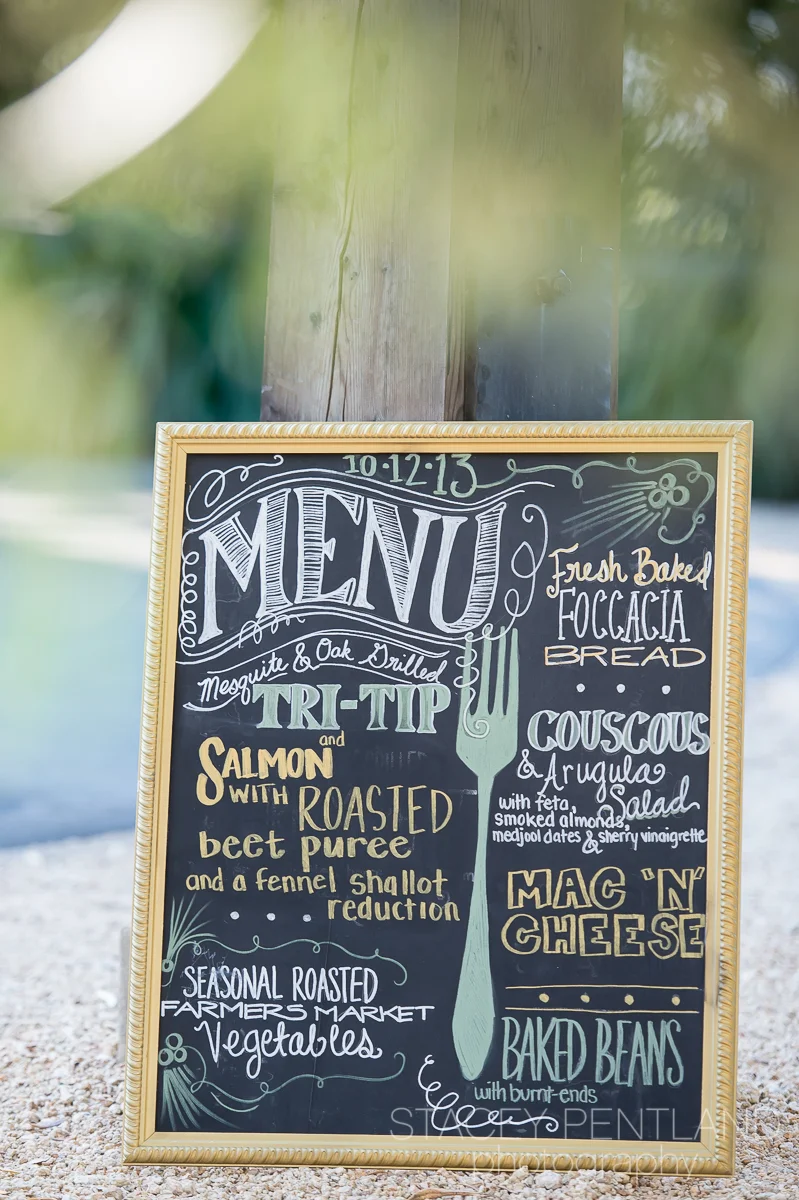 10·12·13
MENU
Mesquite & Oak Grilled
TRI-TIP
and
SALMON
WITH ROASTED
beet puree
and a fennel shallot
reduction
SEASONAL ROASTED
FARMERS MARKET
Vegetables
Fresh Baked
FOCCACIA
BREAD
COUSCOUS
& Arugula
Salad
with feta,
smoked almonds,
medjool dates & sherry vinaigrette
MAC 'N'
CHEESE
BAKED BEANS
with burnt-ends
STACEY PENTLAND
photography